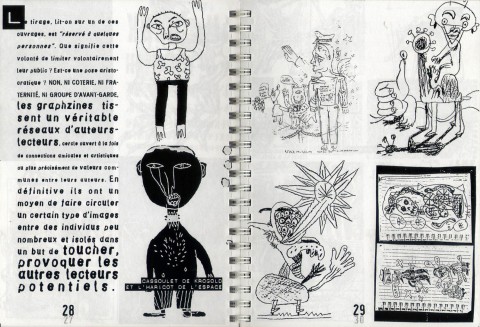 Le tirage, lit-on sur un de ces
ouvrages, est "réservé à quelques
personnes". Que signifie cette
volonté de limiter volontairement
leur public ? Est-ce une pose aristo-
cratique ? NON, NI COTERIE, NI FRA-
TERNITÉ, NI GROUPE D'AVANT-GARDE,
les graphzines tis-
sent un véritable
réseau d'auteurs-
lecteurs, cercle ouvert à la fois
de connections amicales et artistiques
ou plus précisément de valeurs com-
munes entre leurs auteurs. En
définitive ils ont un
moyen de faire circuler
un certain type d'images
entre des individus peu
nombreux et isolés dans
un but de toucher,
provoquer les
autres lecteurs
potentiels.
CASSOULET DE KROGOLD
ET L'HARICOT DE L'ESPACE
28
27
29
30